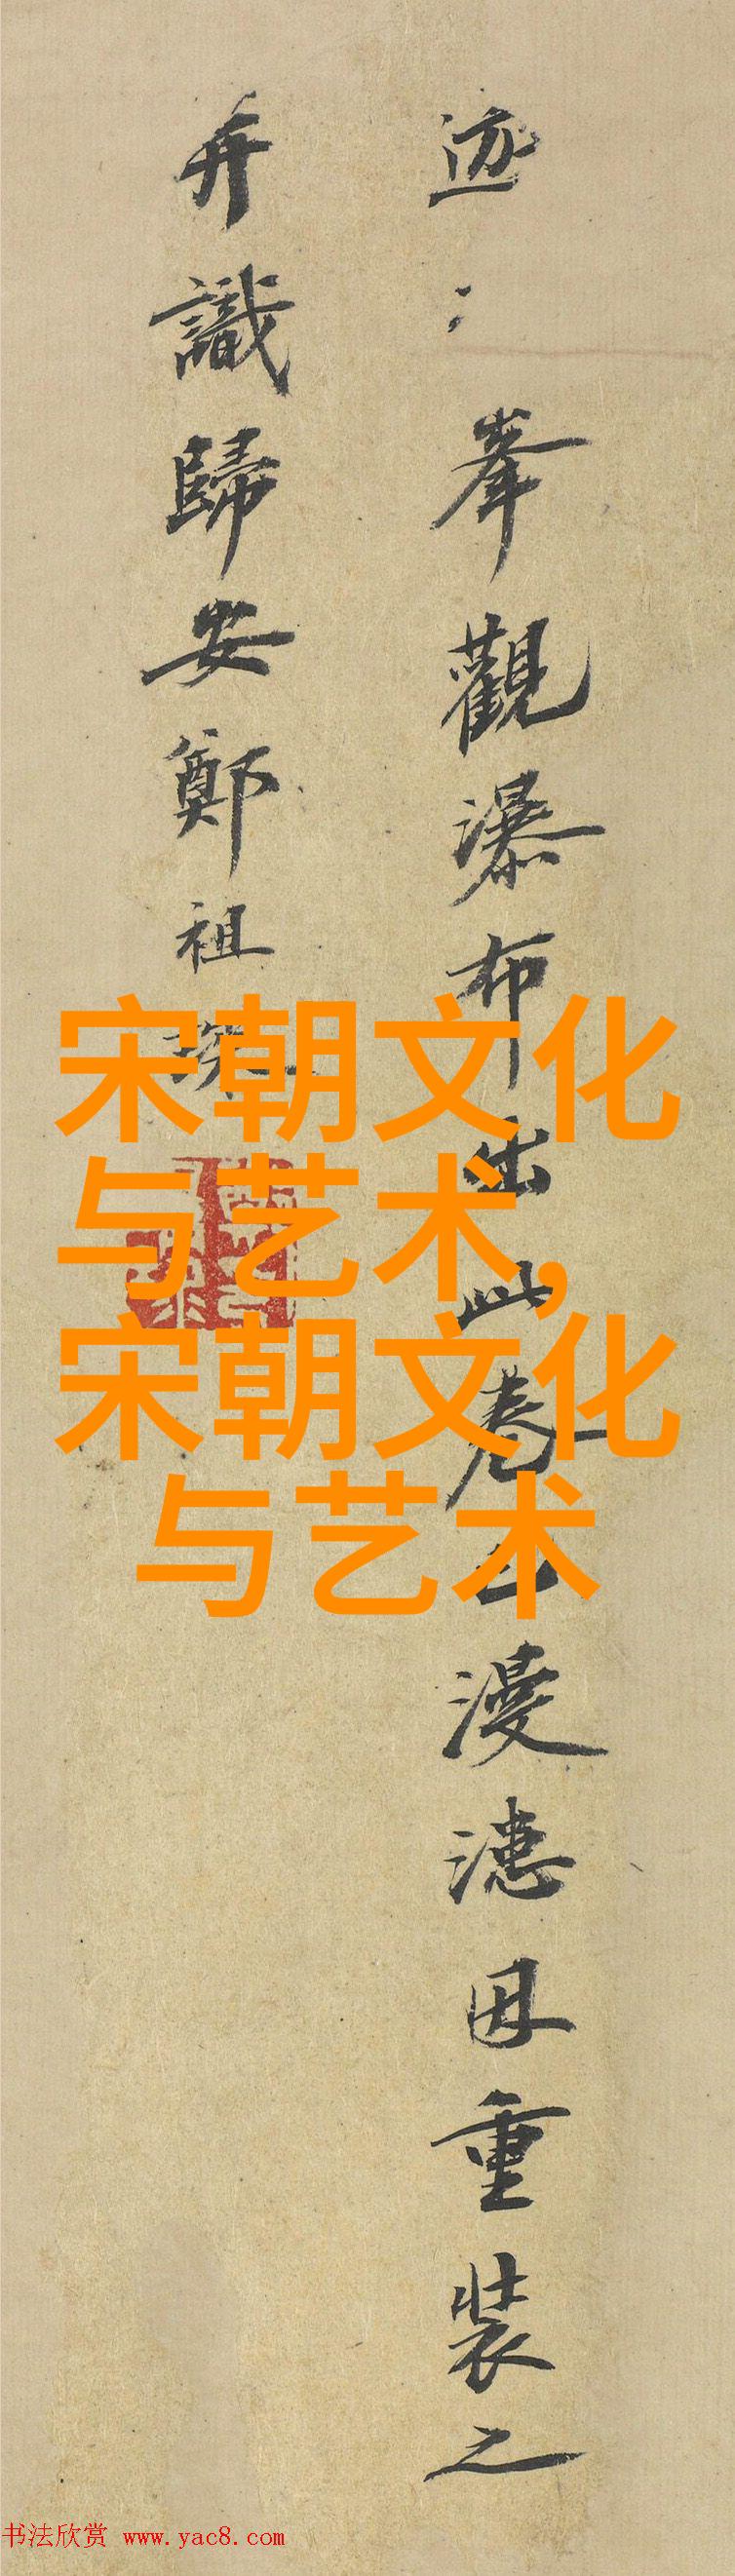 迹〻峯觀瀑布出此卷已漫漶因重裝之
并識歸安鄭祖琛
宋朝文化
与艺术,
宋朝文化
与艺术
书法欣赏 www.yac8.com